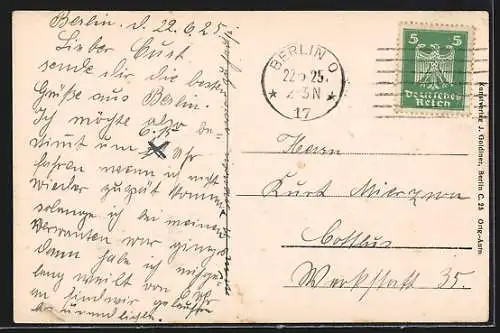 Berlin. d 22.6.25.
Lieber Curt.
sende dir die besten
Grüße aus Berlin.
Ich möchte also be-
stimt um 6 Uhr
fahren wenn ich nicht
wieder zuspät komme
solange ich bei meinen
Verwanten war
dann habe ich
lang weilt von 6 Uhr
an sind wir gelaufen
BERLIN O
22.6.25.
2-3 N
* 17 *
5 5
Deutsches
Reich
Herrn
Kurt Mierzwa
Cottbus
Werkstatt 35.
Kunstverlag J. Goldiner, Berlin C. 25 Orig.-Aufn.